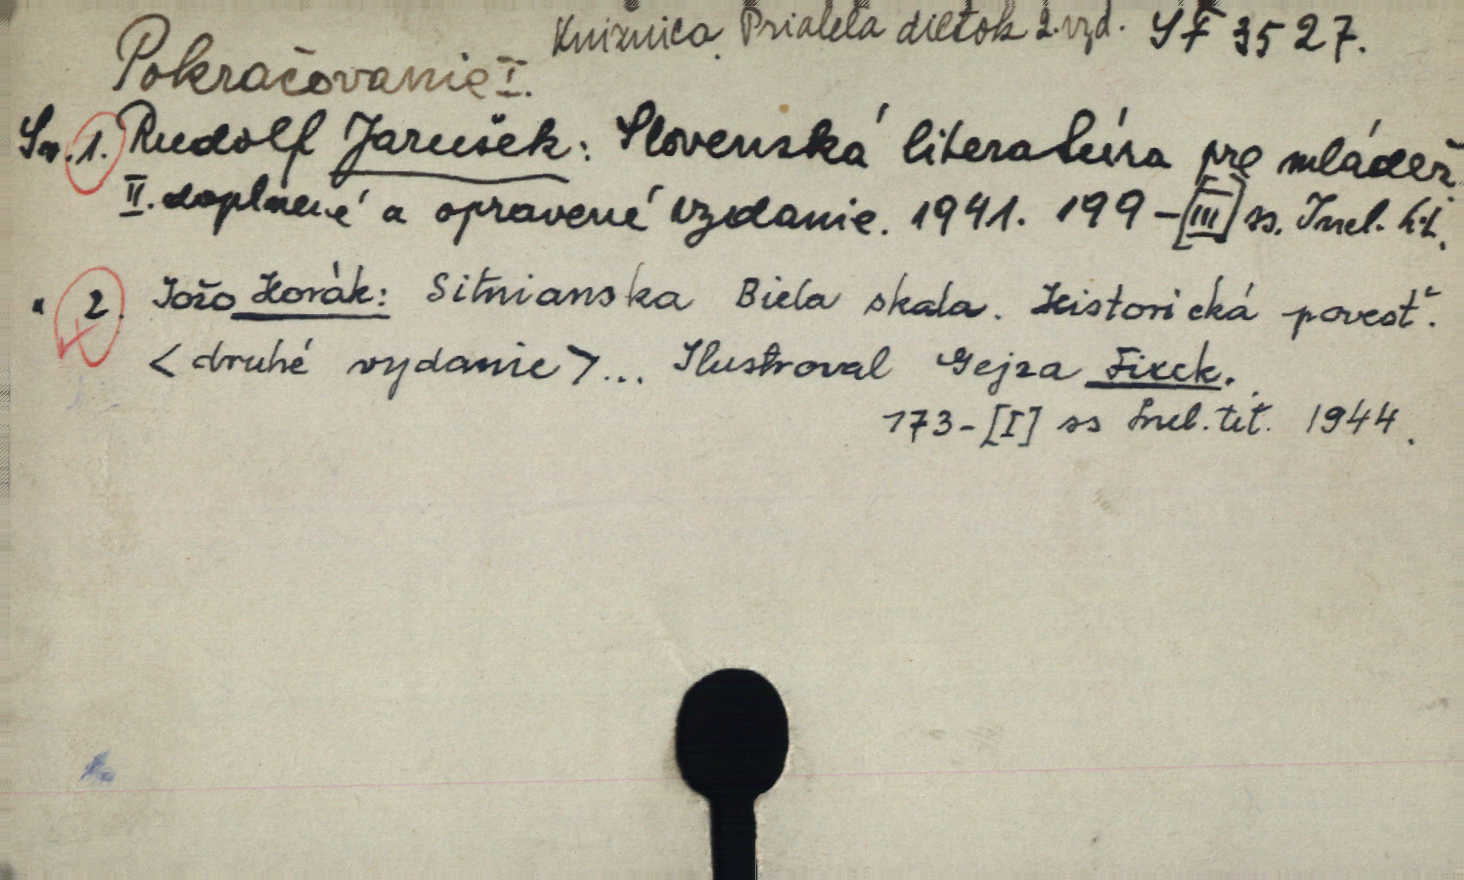 Knižnica Priateľa dietok 2. vyd. SF 3527.
Pokračovanie I.
Sv. 1. Rudolf Jarušek: Slovenská literatúra pre mládež
II. doplnené a opravené vydanie. 1941. 199-[III] ss. Incl. t.l.
" 2. Jožo Horák: Sitnianska Biela skala. Historická povesť.
<druhé vydanie>... Ilustroval Gejza Fixek.
173-[I] ss Incl. tit. 1944.